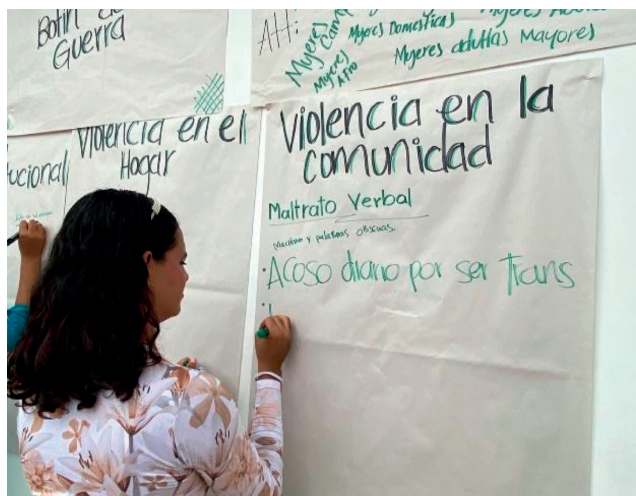 Botin de
Guerra
Att:
Mujeres
Mujeres
Afro
Mujeres Domesticas
Mujeres adultas Mayores
ucional
Violencia en el
Hogar
Violencia en la
comunidad
Maltrato Verbal
y palabras obsenas.
· Acoso diario por ser Trans